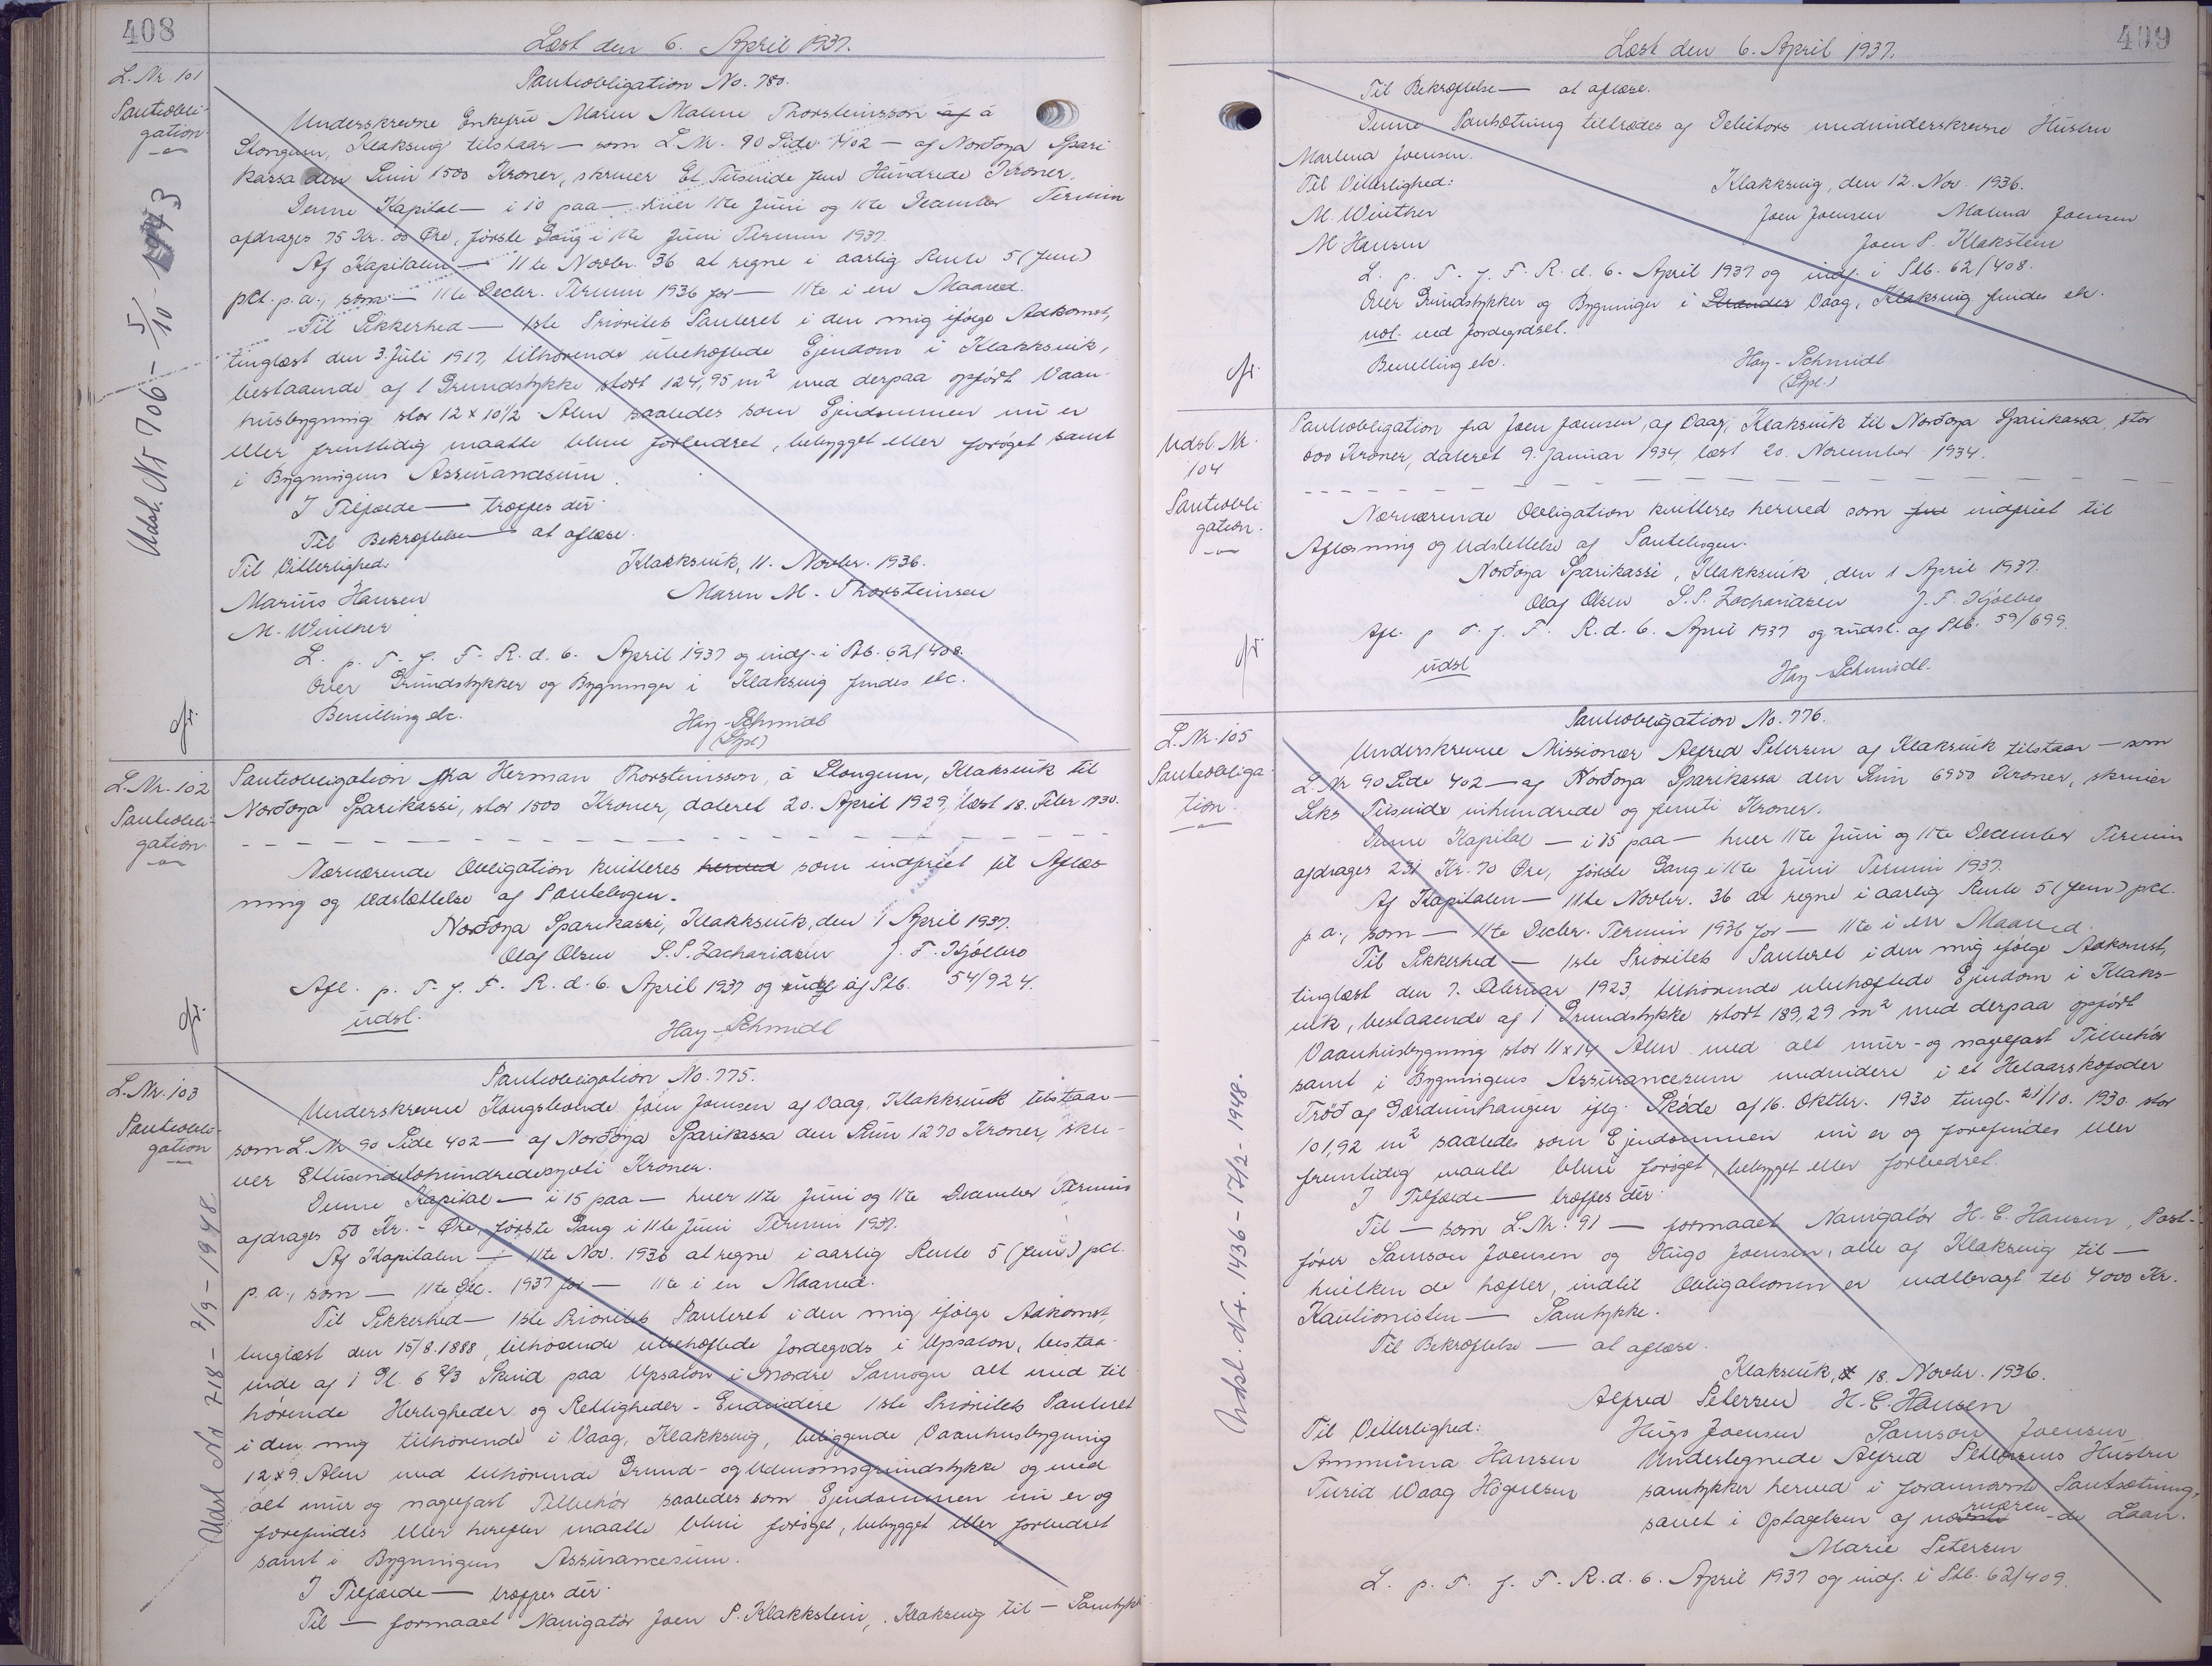 408
Læst den 6. April 1937.
L. Nr. 101
Pantobli-
gation
Pantobligation No. 780.
Underskrevne Enkefrú Maren Malene Thorsteinsson af á
Stongum, Klaksvig tilstaar — som L. Nr. 90 Side 402 — af Norðoya Spari
kassa den Sum 1500 Kroner, skriver Et Tusinde fem Hundrede Kroner.
Denne Kapital — i 10 paa — hver 11te Juni og 11te December Termin
afdrages 75 Kr. 00 Øre, første Gang i 11te Juni Termin 1937.
Af Kapitalen — 11te Novbr. 36 at regne i aarlig Rente 5 (fem)
pCt. p.a., som — 11te Decbr. Termin 1936 for — 11te i en Maaned.
Til Sikkerhed — 1ste Prioritets Panteret i den mig ifølge Adkomst,
tinglæst den 3. Juli 1917, tilhørende ubehæftede Ejendom i Klakksvik,
bestaaende af 1 Grundstykke stort 124,95 m² med derpaa opført Vaan-
husbygning stor 12 x 10½ Alen saaledes som Ejendommen nu er
eller fremtidig maatte blive forbedret, bebygget eller forøget samt
i Bygningens Assurancesum.
I Tilfælde — træffes dér.
Til Bekræftelse — at aflæse.
Til Vitterlighed:
Klakksvik, 11. Novbr. 1936.
Marius Hansen
Maren M. Thorsteinsen
M. Winther
L. p. T. f. F. R. d. 6. April 1937 og indf. i Ptb. 62/408.
Over Grundstykker og Bygninger i Klaksvig findes etc.
Bevilling etc.
Hay-Schmidt
(Spl.)
Udsl. Nr 706 - 5/10 - 1943
L. Nr. 102
Pantobli-
gation
Pantobligation fra Herman Thorsteinsson, á Stongum, Klaksvik til
Norðoya Sparikassi, stor 1500 Kroner, dateret 20. April 1929, læst 18. Febr 1930.
Nærværende Obligation kvitteres herved som indfriet til Aflæs
ning og Udslettelse af Pantebogen.
Norðoya Sparikassi, Klakksvik, den 1 April 1937.
Olaf Olsen S.P. Zachariasen J. F. Kjølbro
Afl. p. T. f. F. R. d. 6. April 1937 og indf af Ptb. 54/924.
udsl.
Hay-Schmidt
L. Nr. 103
Pantobli-
gation
Pantobligation No. 775.
Underskrevne Kongsbonde Joen Joensen af Vaag, Klakksvik tilstaar —
som L. Nr 90 Side 402 — af Norðoya Sparikassa den Sum 1270 Kroner, skri-
ver Ettusindetohundredesyvti Kroner.
Denne Kapital — i 15 paa — hver 11te Juni og 11te December Termin
afdrages 50 Kr. - Øre, første Gang i 11te Juni Termin 1937.
Af Kapitalen — 11te Nov. 1936 at regne i aarlig Rente 5 (fem) pCt.
p. a., som — 11te Dec. 1937 for — 11te i en Maaned.
Til Sikkerhed — 1ste Prioritets Panteret i den mig ifølge Adkomst,
tinglæst den 15/8.1888, tilhørende ubehæftede Jordegods i Upsalon, bestaa-
ende af 1 Gl. 6 2/3 Skind paa Upsalon i Nordre Samogn alt med til
hørende Herligheder og Rettigheder - Endvidere 1ste Prioritets Panteret
i den mig tilhørende i Vaag, Klakksvig, beliggende Vaanhusbygning
12 x 9 Alen med tilhørende Grund- og Udenomsgrundstykke og med
alt mur og nagelfast Tilbehør saaledes som Ejendommen nu er og
forefindes eller herefter maatte blive forøget, bebygget eller forbedret
samt i Bygningens Assurancesum.
I Tilfælde — træffes dér.
Til — formaaet Navigatør Joen P. Klakkstein, Klaksvig til — Samtykke
Udsl Nr 718 - 2/9 - 1948
409
Læst den 6. April 1937.
Til Bekræftelse — at aflæse.
Denne Pantsætning tiltrædes af Debitors medunderskrevne Hustru
Marlena Joensen.
Til Vitterlighed:
Klakksvig, den 12. Nov. 1936.
M. Winther
Joen Joensen Malena Joensen
M Hansen
Joen P. Klakstein
L. p. T. f. F. R. d. 6. April 1937 og indf. i Ptb. 62/408.
Over Grundstykker og Bygninger i Strendes Vaag, Klaksvig findes etc.
not. ved Jordegodset.
Bevilling etc.
Hay-Schmidt
(Spl.)
Udsl. Nr.
104
Pantobli
gation.
Pantobligation fra Joen Joensen, af Vaag, Klaksvik til Norðoya Sparikassa, stor
000 Kroner, dateret 9. Januar 1934, læst 20. November 1934.
Nærværende Obligation kvitteres herved som indfriet til
Aflæsning og Udslettelse af Pantebogen.
Norðoya Sparikassi, Klakksvik, den 1 April 1937.
Olaf Olsen S. P. Zachariasen J. F. Kjølbro
Afl. p T. f. F. R. d. 6. April 1937 og udsl. af Ptb. 59/699.
udsl
Hay-Schmidt.
L. Nr. 105
Pantobliga
tion.
Pantobligation No. 776.
Underskrevne Missionær Alfred Petersen af Klaksvik tilstaar — som
L. Nr 90 Side 402 — af Norðoya Sparikassa den Sum 6950 Kroner, skriver
Seks Tusinde nihundrede og femti Kroner.
Denne Kapital — i 15 paa — hver 11te Juni og 11te December Termin
afdrages 231 Kr. 70 Øre, første Gang i 11te Juni Termin 1937.
Af Kapitalen — 11te Novbr. 36 at regne i aarlig Rente 5 (fem) pCt.
p. a., som — 11te Decbr. Termin 1936 for — 11te i en Maaned.
Til Sikkerhed — 1ste Prioritets Panteret i den mig ifølge Adkomst,
tinglæst den 7. Februar 1923, tilhørende ubehæftede Ejendom i Klaks-
vik, bestaaende af 1 Grundstykke stort 189,29 m² med derpaa opført
Vaanhusbygning stor 11 x 14 Alen med alt mur- og nagelfast Tilbehør
samt i Bygningens Assurancesum endvidere i et Helaarskofoder
Trøð af Gærdumhangen iflg. Skøde af 16. Oktbr. 1930 tingl. 21/10. 1930 stor
101,92 m² saaledes som Ejendommen nu er og forefindes eller
fremtidig maatte blive forøget, bebygget eller forbedret.
I Tilfælde — træffes dér.
Til — som L. Nr. 91 — formaaet Navigatør H. C. Hansen, Post-
fører Samson Joensen og Hugo Joensen, alle af Klaksvig til —
hvilken de hæfter, indtil Obligationen er nedbragt til 4000 Kr.
Kautionisten — Samtykke.
Til Bekræftelse — at aflæse.
Klaksvik, 18. Novbr. 1936.
Alfred Petersen H. C. Hansen
Til Vitterlighed:
Hugo Joensen Samson Joensen
Ammuma Hansen
Undertegnede Alfred Petersens Hustru
Turid Waag Högnesen
samtykker herved i forannævnte Pantsætning,
samt i Optagelsen af nærværen-de Laan.
Marie Petersen
L. p. T. f. F. R. d. 6. April 1937 og indf. i Ptb. 62/409.
Udsl. Nr. 1436 - 17/2 - 1948.